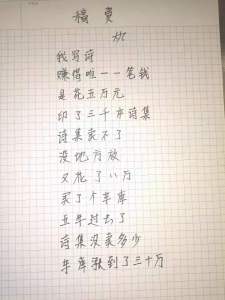 稿费
我写诗
赚得唯一一笔钱
是花五万元
印了三千本诗集
诗集卖不了
没地方放
又花了八万
买了个车库
五年过去了
诗集没卖多少
车库涨到了三十万